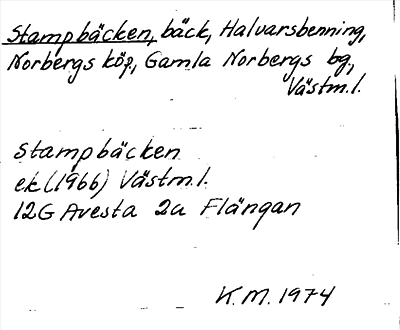 Stampbäcken, bäck, Halvarsbenning,
Norbergs köp., Gamla Norbergs bg,
Västm.l.
Stampbäcken
ek (1966) Västm.l.
12G Avesta 2a Flängan
K.M. 1974